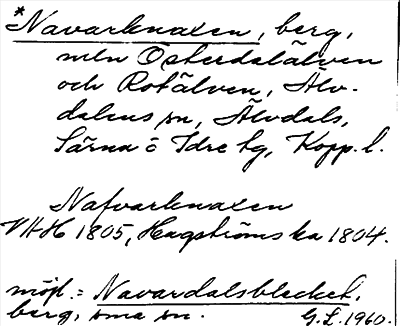 *Navarknaxen, berg,
mln Österdalälven
och Rotälven, Älv-
dalens sn, Älvdals,
Särna o Idre tg, Kopp. l.
Nafvarknaxen
VHH 1805, Hagströms ka 1804.
möjl. = Navardalsblecket,
berg, sma sn. G.L. 1960.